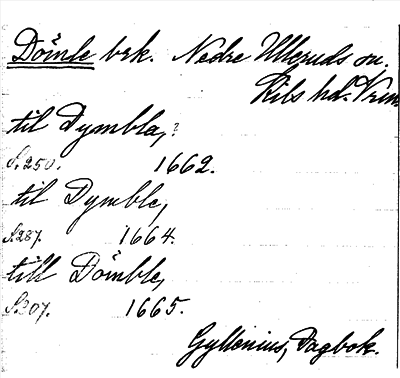 Dömle brk. Nedre Ulleruds sn.
Kils hd. Vrml.
till Dymbla,?
S. 250. 1662.
till Dymble,
S. 287. 1664.
till Dömble,
S. 307. 1665.
Gyllenius, Dagbok.